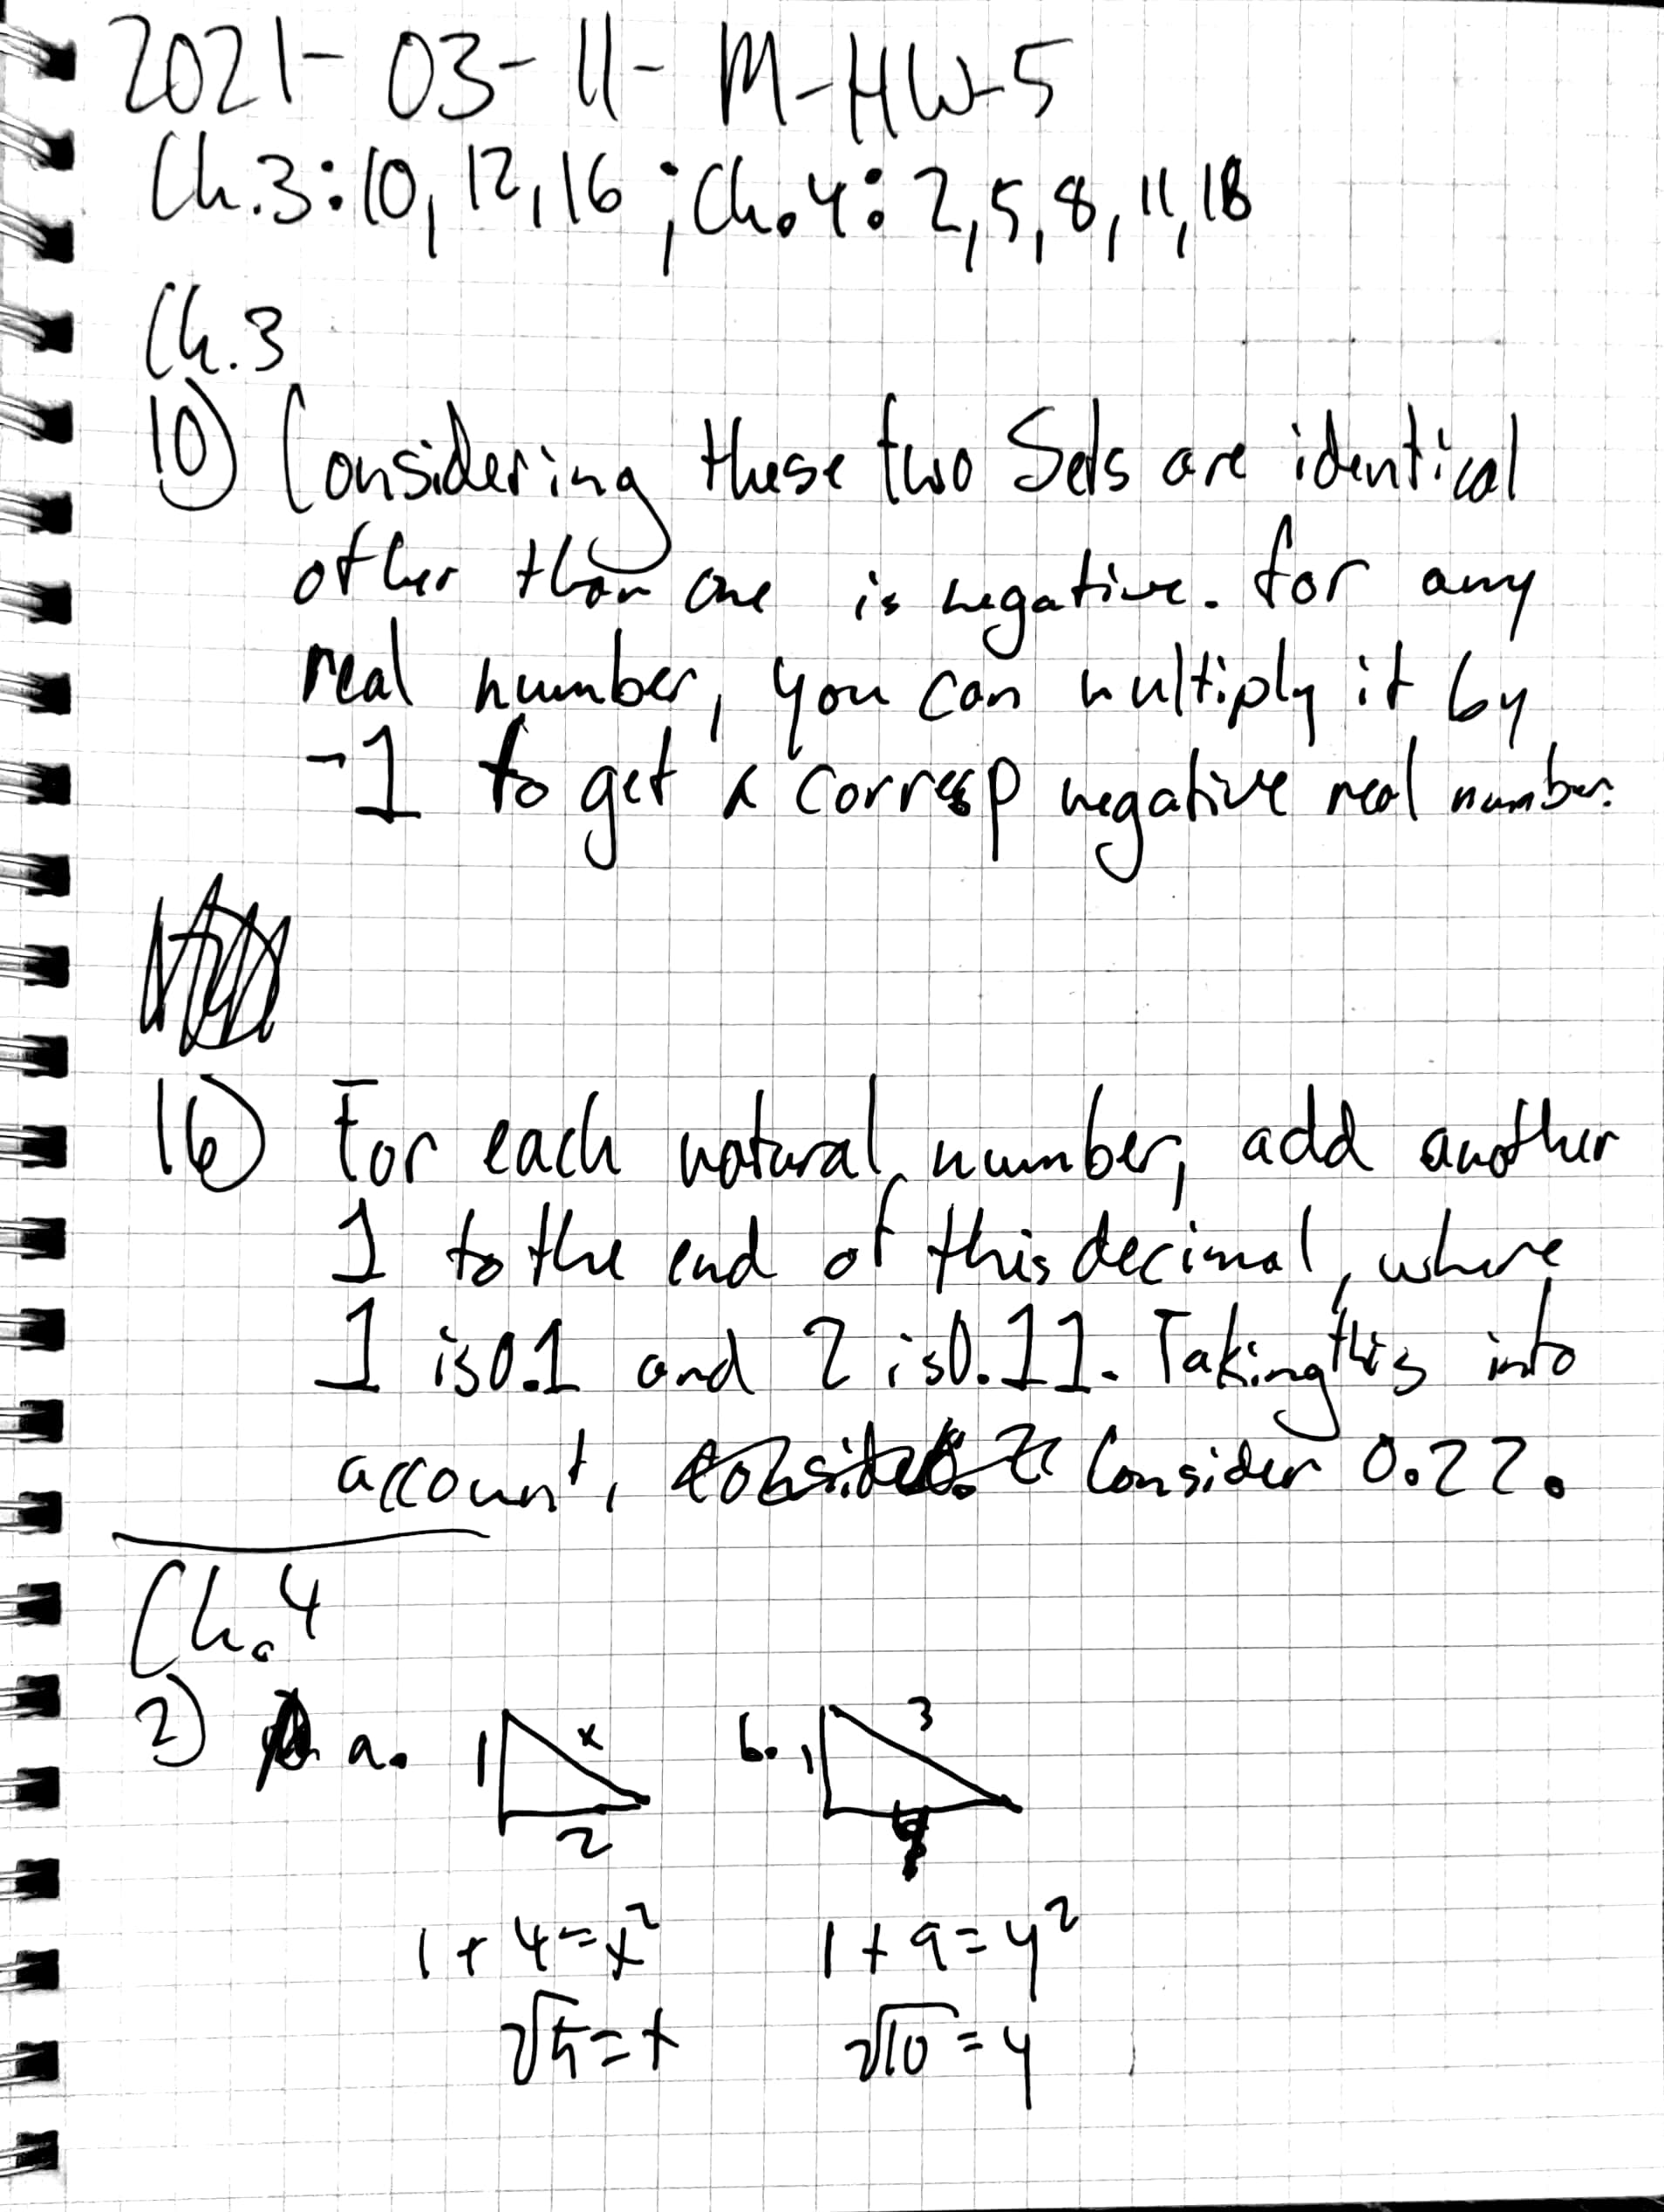 2021-03-11-M-HW-5
Ch.3:10,12,16;Ch.4:2,5,8,11,18
Ch.3
10) Considering these two Sets are identical
other than one is negative. for any
real number, you can multiply it by
-1 to get a corresp negative real number.
16) For each natural number, add another
1 to the end of this decimal, where
1 is 0.1 and 2 is 0.11. Taking this into
account, Consider 0.22.
Ch.4
2) a. 1 x 2 b. 1 3 y
1+4=x² 1+9=y²
√5=x √10=y